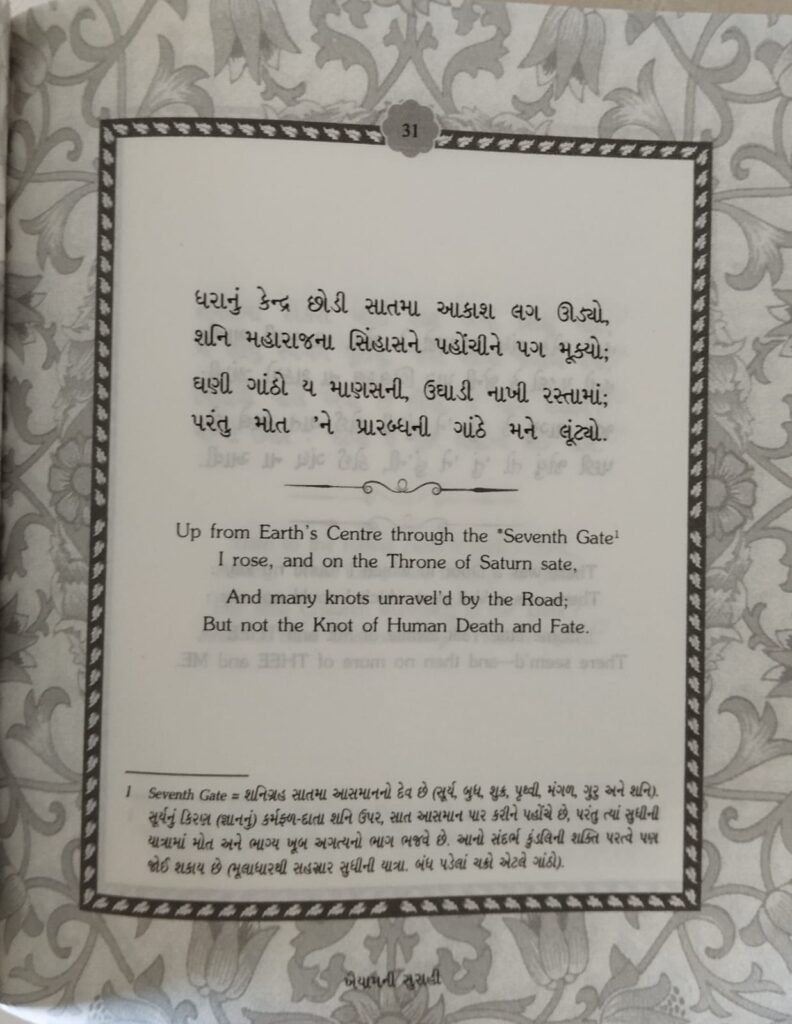 31
ધરાનું કેન્દ્ર છોડી સાતમા આકાશ લગ ઊડ્યો,
શનિ મહારાજના સિંહાસને પહોંચીને પગ મૂક્યો;
ઘણી ગાંઠો ય માણસની, ઉઘાડી નાખી રસ્તામાં;
પરંતુ મોત ’ને પ્રારબ્ધની ગાંઠે મને લૂંટ્યો.
Up from Earth's Centre through the *Seventh Gate¹
I rose, and on the Throne of Saturn sate,
And many knots unravel'd by the Road;
But not the Knot of Human Death and Fate.
1 Seventh Gate = શનિગ્રહ સાતમા આસમાનનો દેવ છે (સૂર્ય, બુધ, શુક્ર, પૃથ્વી, મંગળ, ગુરુ અને શનિ).
સૂર્યનું કિરણ (જ્ઞાનનું) કર્મફળ-દાતા શનિ ઉપર, સાત આસમાન પાર કરીને પહોંચે છે, પરંતુ ત્યાં સુધીની
યાત્રામાં મોત અને ભાગ્ય ખૂબ અગત્યનો ભાગ ભજવે છે. આનો સંદર્ભ કુંડલિની શક્તિ પરત્વે પણ
જોઈ શકાય છે (મૂલાધારથી સહસ્રાર સુધીની યાત્રા. બંધ પડેલાં ચક્રો એટલે ગાંઠો).
ખૈયામની સુરાહી